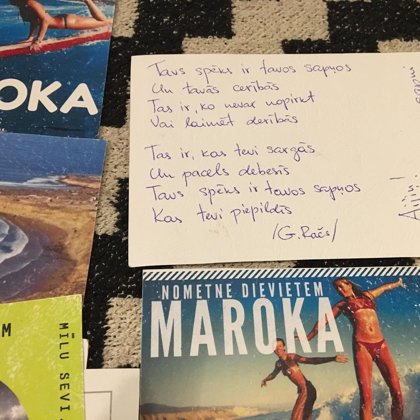 OKA
Tavs spēks ir tavos sapņos
Un tavās cerībās
Tas ir, ko nevar nopirkt
Vai laimēt derībās
Tas ir, kas tevi sargās
Un pacels debesīs
Tavs spēks ir tavos sapņos
Kas tevi piepildīs
/G.Račs/
NOMETNE DIEVIETEM
MAROKA
M
MĪLU SEVI